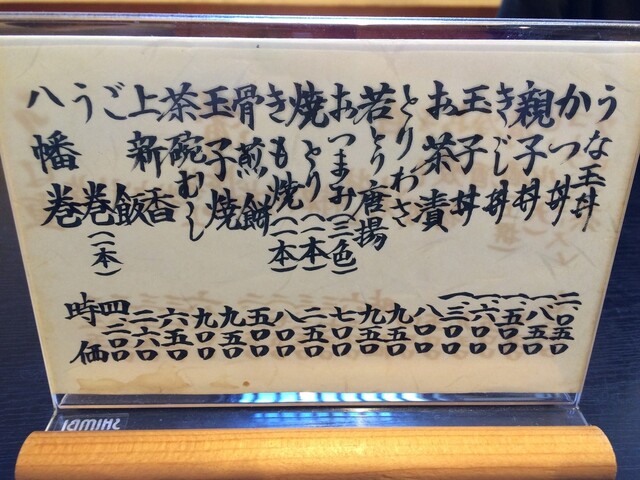 うな玉丼 二、〇五〇
かつ丼 一、八〇〇
親子丼 一、五〇〇
きじ丼 一、六〇〇
玉子丼 一、三〇〇
お茶漬 八〇〇
とりわさ 九五〇
若とり唐揚 九五〇
おつまみ(三色) 七〇〇
焼とり(一本) 二五〇
きも焼(一本) 八〇〇
骨煎餅 五〇〇
玉子焼 九五〇
茶碗むし 九〇〇
上新香 六五〇
ご飯 二六〇
う巻(一本) 四二〇〇
八幡巻 時価